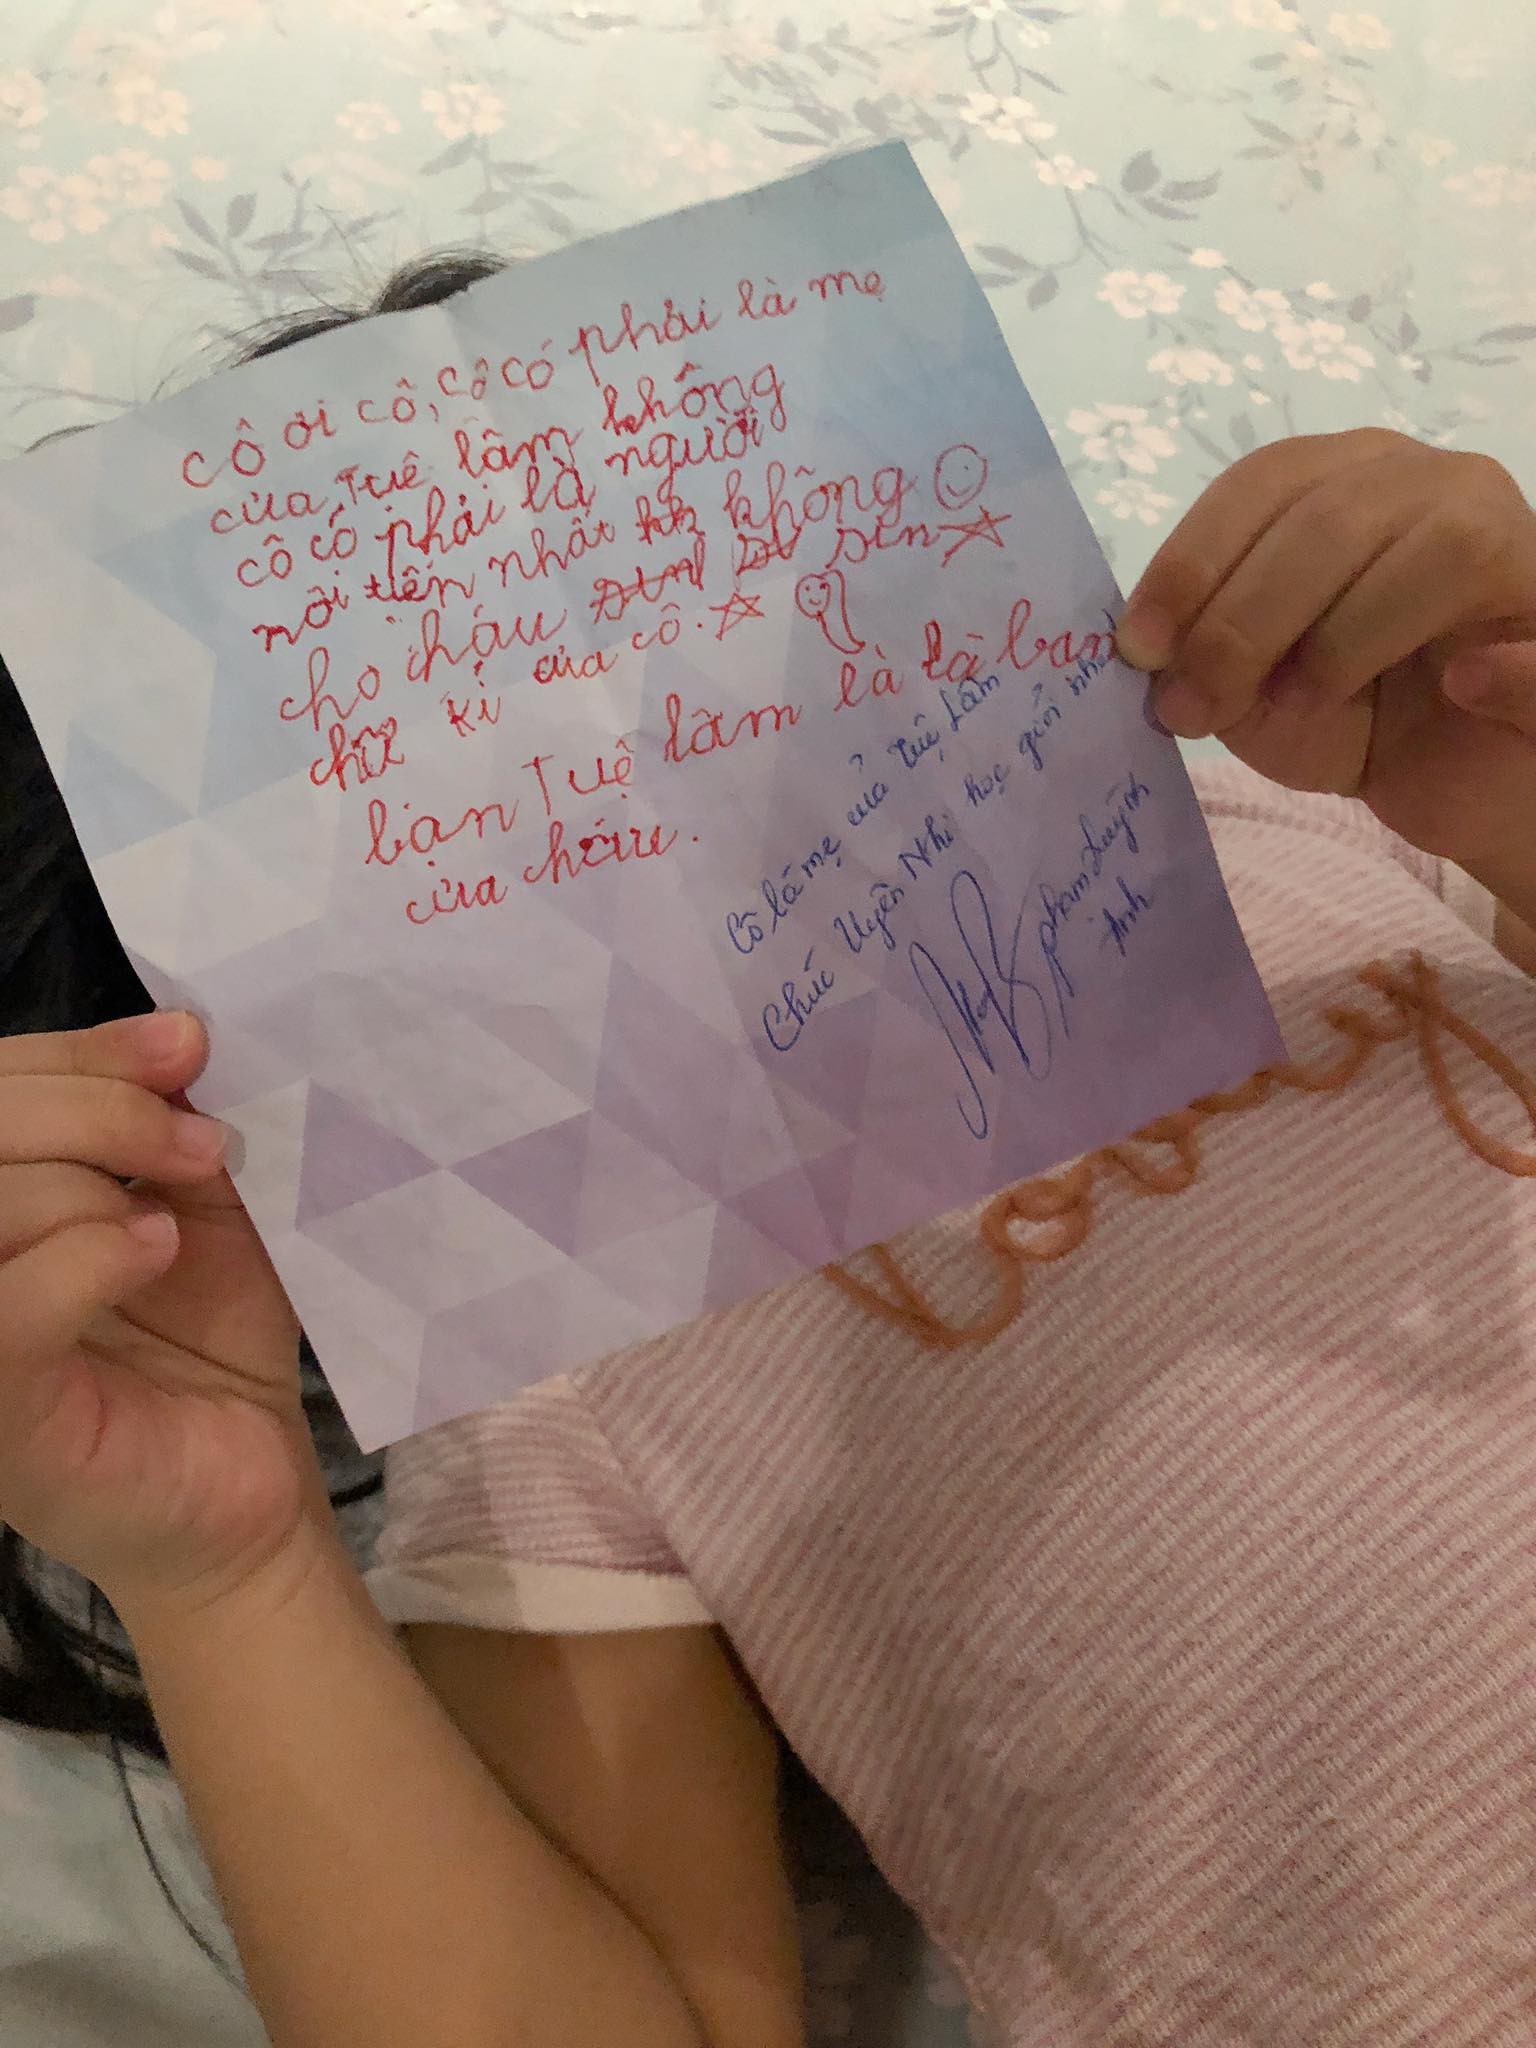 cô ơi cô, cô có phải là mẹ
của Tuê lâm không
cô có phải là người
nôi tiến nhất không
cho cháu stn
chữ kí của cô.
bạn Tuệ lâm là là bạn
của cháu.
Cô là mẹ của Tuệ Lâm
Chúc Uyên Nhi học giỏi nha
phạm Quỳnh
Anh
Lovely